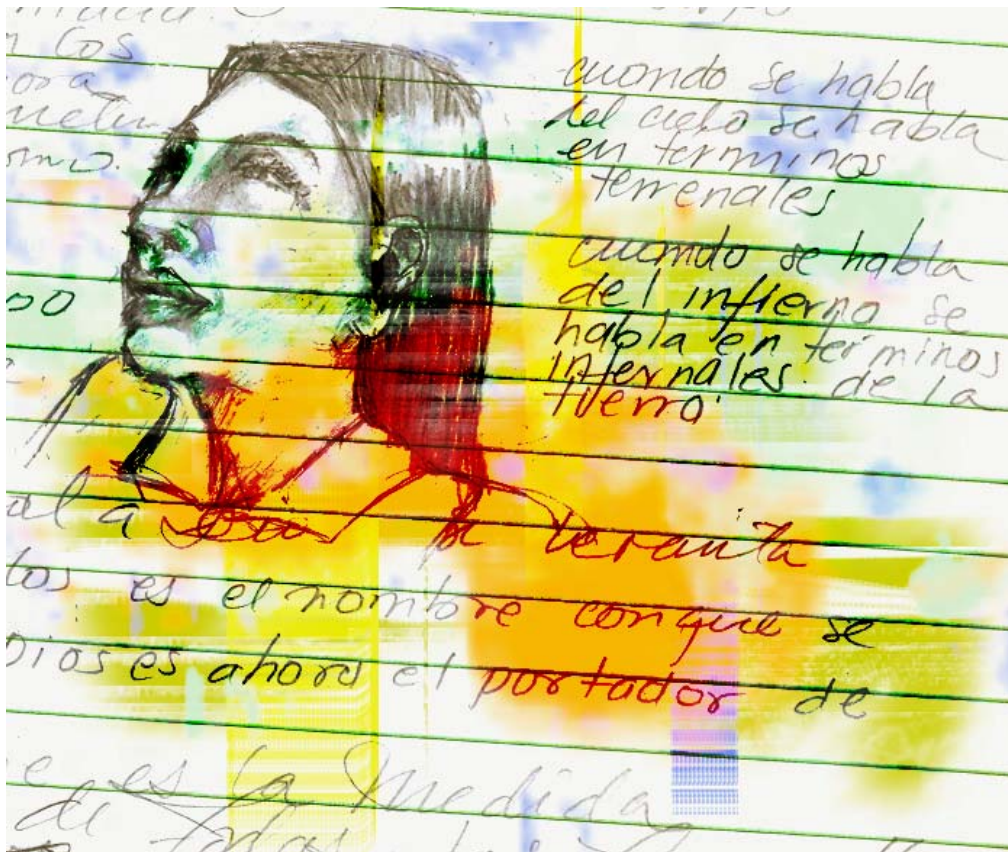 n los
ora
cuando se habla
del cielo se habla
en terminos
terrenales
cuando se habla
del infierno se
habla en terminos
infernales de la
tierra.
al a se levanta
los es el nombre conque se
Dios es ahora el portador de
e es la medida
de todas